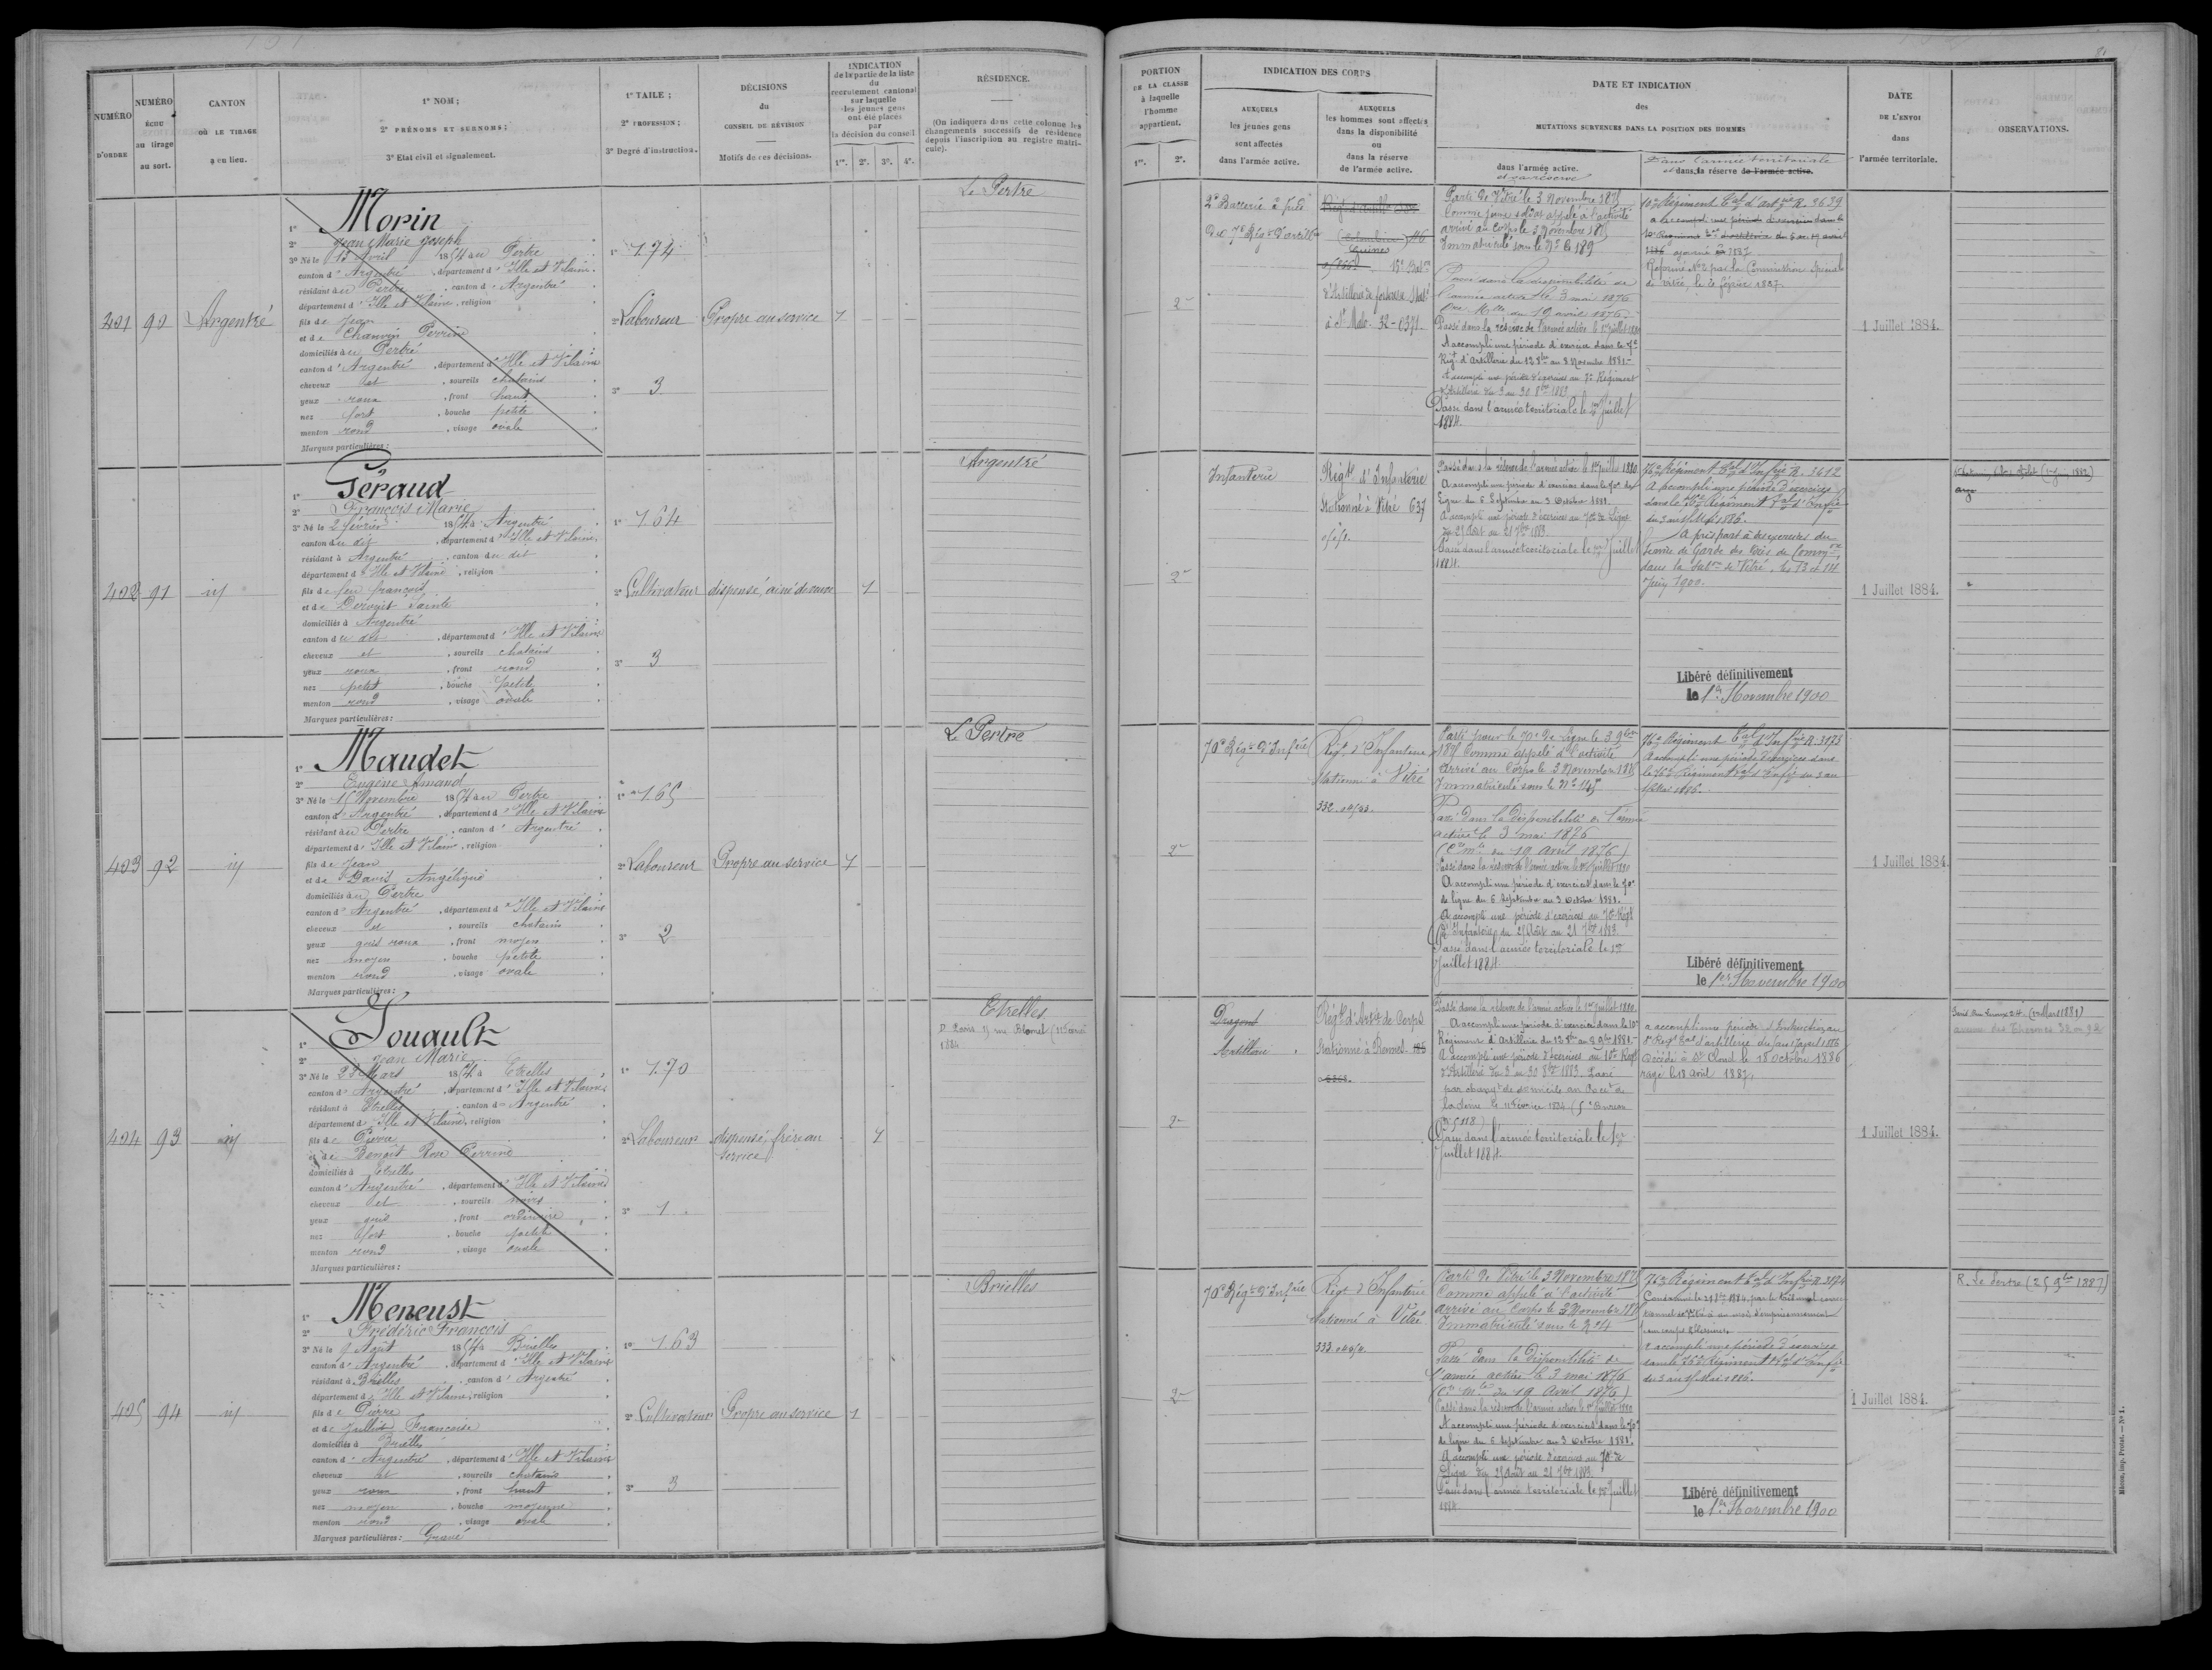 NUMÉRO
D'ORDRE
NUMÉRO
ÉCHU
au tirage
au sort.
CANTON
OÙ LE TIRAGE
a eu lieu.
1° NOM ;
2° PRÉNOMS ET SURNOMS ;
3° Etat civil et signalement.
1° TAILE ;
2° PROFESSION ;
3° Degré d'instruction.
DÉCISIONS
du
CONSEIL DE RÉVISION
Motifs de ces décisions.
INDICATION
de la partie de la liste
du
recrutement cantonal
sur laquelle
les jeunes gens
ont été placés
par
la décision du conseil
1re. 2e. 3e. 4e.
RÉSIDENCE.
(On indiquera dans cette colonne les
changements successifs de résidence
depuis l'inscription au registre matri-
cule).
401 90 Argentré
1° Morin
2° Jean Marie Joseph
3° Né le 15 Avril 1854 à au Pertre
canton d'Argentré, département d'Ille et Vilaine.
résidant à au Pertre, canton d'Argentré
département d'Ille et Vilaine, religion
fils de Jean
et de Chauvin Perrine
domiciliés à au Pertre
canton d'Argentré, département d'Ille et Vilaine
cheveux et, sourcils chatains
yeux roux, front haut
nez fort, bouche petite
menton rond, visage ovale
Marques particulières :
1° 1.74
2° Laboureur
3° 3
Propre au service 1
Le Pertre
402 91 id
1° Géraud
2° François Marie
3° Né le 2 février 1854 à Argentré
canton du dit, département d'Ille et Vilaine.
résidant à Argentré, canton du dit
département d'Ille et Vilaine, religion
fils de feu françois
et de Derouet Sainte
domiciliés à Argentré
canton du dit, département d'Ille et Vilaine
cheveux et, sourcils chatains
yeux roux, front rond
nez petit, bouche petite
menton rond, visage ovale
Marques particulières :
1° 1.64
2° Cultivateur
3° 3
dispensé, ainé de veuve 1
Argentré
403 92 id
1° Maudet
2° Eugène Amand
3° Né le 15 Novembre 1854 à au Pertre
canton d'Argentré, département d'Ille et Vilaine
résidant à au Pertre, canton d'Argentré
département d'Ille et Vilaine, religion
fils de Jean
et de Davis Angélique
domiciliés à au Pertre
canton d'Argentré, département d'Ille et Vilaine
cheveux et, sourcils chatains
yeux gris roux, front moyen
nez moyen, bouche petite
menton rond, visage ovale
Marques particulières :
1° 1.65
2° Laboureur
3° 2
Propre au service 1
Le Pertre
404 93 id
1° Jouault
2° Jean Marie
3° Né le 23 Mars 1854 à Etrelles
canton d'Argentré, département d'Ille et Vilaine
résidant à Etrelles, canton d'Argentré
département d'Ille et Vilaine, religion
fils de Pierre
et de Benoit Rose Perrine
domiciliés à Etrelles
canton d'Argentré, département d'Ille et Vilaine
cheveux et, sourcils noirs
yeux gris, front ordinaire
nez fort, bouche petite
menton rond, visage ovale
Marques particulières :
1° 1.70
2° Laboureur
3° 1
dispensé, frère au
service
1
Etrelles
405 94 id
1° Meneust
2° Frédéric François
3° Né le 9 Août 1854 à Brielles
canton d'Argentré, département d'Ille et Vilaine
résidant à Brielles, canton d'Argentré
département d'Ille et Vilaine, religion
fils de Pierre
et de Juillot Françoise
domiciliés à Brielles
canton d'Argentré, département d'Ille et Vilaine
cheveux et, sourcils chatains
yeux roux, front haut
nez moyen, bouche moyenne
menton rond, visage ovale
Marques particulières : Gravé
1° 1.63
2° Cultivateur
3° 3
Propre au service 1
Brielles
81
PORTION
DE LA CLASSE
à laquelle
l'homme
appartient.
1re. 2e.
INDICATION DES CORPS
AUXQUELS
les jeunes gens
sont affectés
dans l'armée active.
AUXQUELS
les hommes sont affectés
dans la disponibilité
ou
dans la réserve
de l'armée active.
DATE ET INDICATION
des
MUTATIONS SURVENUES DANS LA POSITION DES HOMMES
dans l'armée active.
et sa réserve
Dans l'armée territoriale
et dans sa réserve de l'armée active.
DATE
DE L'ENVOI
dans
l'armée territoriale.
OBSERVATIONS.
2e
2e Batterie à pied
du 7e Régt d'artillie
15e Baton
d'Artillerie de forteresse Statné
à St Malo. 32-0371
Parti de Vitré le 3 Novembre 1875
Comme jeune soldat appelé à l'activité
arrivé au Corps le 3 Novembre 1875
Immatriculé sous le N°
Passé dans la disponibilité de
l'armée active le 3 mai 1876
du 19 avril 1876.
Passé dans la réserve de l'armée active le 1er juillet 1880
A accompli une période d'exercice dans le 7e
Régt d'Artillerie du 12 8bre au 8 Novembre 1881.
A accompli une période d'exercices au 7e Régiment
d'Artillerie du 3 au 30 8bre 1883
Passé dans l'armée territoriale le 1er Juillet
1884.
10e Régiment Tal d'Artrie R. 3639
ajourné à 1887
Réformé N°2 par la Commission Spéciale
de Vitré, le
1 Juillet 1884.
2e
Infanterie
Régt d'Infanterie
Stationné à Vitré 637
Passé dans la réserve de l'armée active le 1er juillet 1880
A accompli une période d'exercices dans le 70e de
Ligne du 6 Septembre au 3 Octobre 1881.
A accompli une période d'exercices au 70e de Ligne
du 25 Août au 21 7bre 1883.
Passé dans l'armée territoriale le 1er Juillet
1884.
76e Régiment Tal d'Infrie R. 3612
A accompli une période d'exercices
dans le 76e Régiment Tal d'Infie
du 3 au 15 Mai 1886.
A pris part à des exercices du
Service de Garde des Voies de Common
dans la Subon de Vitré, les 13 et 14
Juin 1900.
Libéré définitivement
le 1er Novembre 1900
1 Juillet 1884.
2e
70e Régt d'Infrie
Régt d'Infanterie
Stationné à Vitré
332
Parti pour le 70e de Ligne le 3 9bre
1875 Comme appelé à l'activité
arrivé au Corps le 3 Novembre 1875
Immatriculé sous le N°
Passé dans la Disponibilité de l'armée
active le 3 mai 1876
du 19 Avril 1876)
Passé dans la réserve de l'armée active le 1er juillet 1880
A accompli une période d'exercices dans le 70e
de ligne du 6 Septembre au 3 Octobre 1881.
A accompli une période d'exercices au 70e Régt
d'Infanterie du 25 Août au 21 7bre 1883
Passé dans l'armée territoriale le 1er
Juillet 1884.
76e Régiment Tal d'Infrie R. 3173
A accompli une période d'exercices dans
le 76e Régiment Tal d'Infie du 3 au
15 Mai 1886.
Libéré définitivement
le 1er Novembre 1900
1 Juillet 1884.
2e
Dragons
Artillerie
Régt d'Artie de Corps
Stationné à Rennes
Passé dans la réserve de l'armée active le 1er juillet 1880
A accompli une période d'exercices dans le 10e
Régiment d'Artillerie du 12 8bre au 8 9bre 1881.
A accompli une période d'exercices au 10e Régt
d'Artillerie du 3 au 30 8bre 1883. Passé
par changt de domicile au
la Seine le 11 février 1884 (5e Bureau
Passé dans l'armée territoriale le 1er
Juillet 1884.
a accompli une période d'Instruction au
Régt Tal d'artillerie
Décédé à St Cloud le 18 octobre 1886
rayé le 18 avril 1887.
1 Juillet 1884.
2e
70e Régt d'Infrie
Régt d'Infanterie
Stationné à Vitré
333
Parti de Vitré le 3 Novembre 1875
Comme appelé à l'activité
arrivé au Corps le 3 Novembre 1875
Immatriculé sous le
Passé dans la Disponibilité de
l'armée active le 3 mai 1876
du 19 Avril 1876)
Passé dans la réserve de l'armée active le 1er Juillet 1880
A accompli une période d'exercices dans le 70e
de ligne du 6 Septembre au 3 Octobre 1881.
A accompli une période d'exercices au 70e de
Ligne du 25 Août au 21 7bre 1883.
Passé dans l'armée territoriale le 1er Juillet
1884.
76e Régiment Tal d'Infrie R. 3174
Condamné le 21 1884 par le tribunal correc-
tionnel de Vitré à un mois d'emprisonnement
pour coups & blessures
A accompli une période d'exercices
dans le 76e Régiment Tal d'Infie
du 3 au 15 Mai 1886.
Libéré définitivement
le 1er Novembre 1900
1 Juillet 1884.
R. Le Pertre (25 9bre 1887)
Mâcon, imp. Protat. — N° 1.